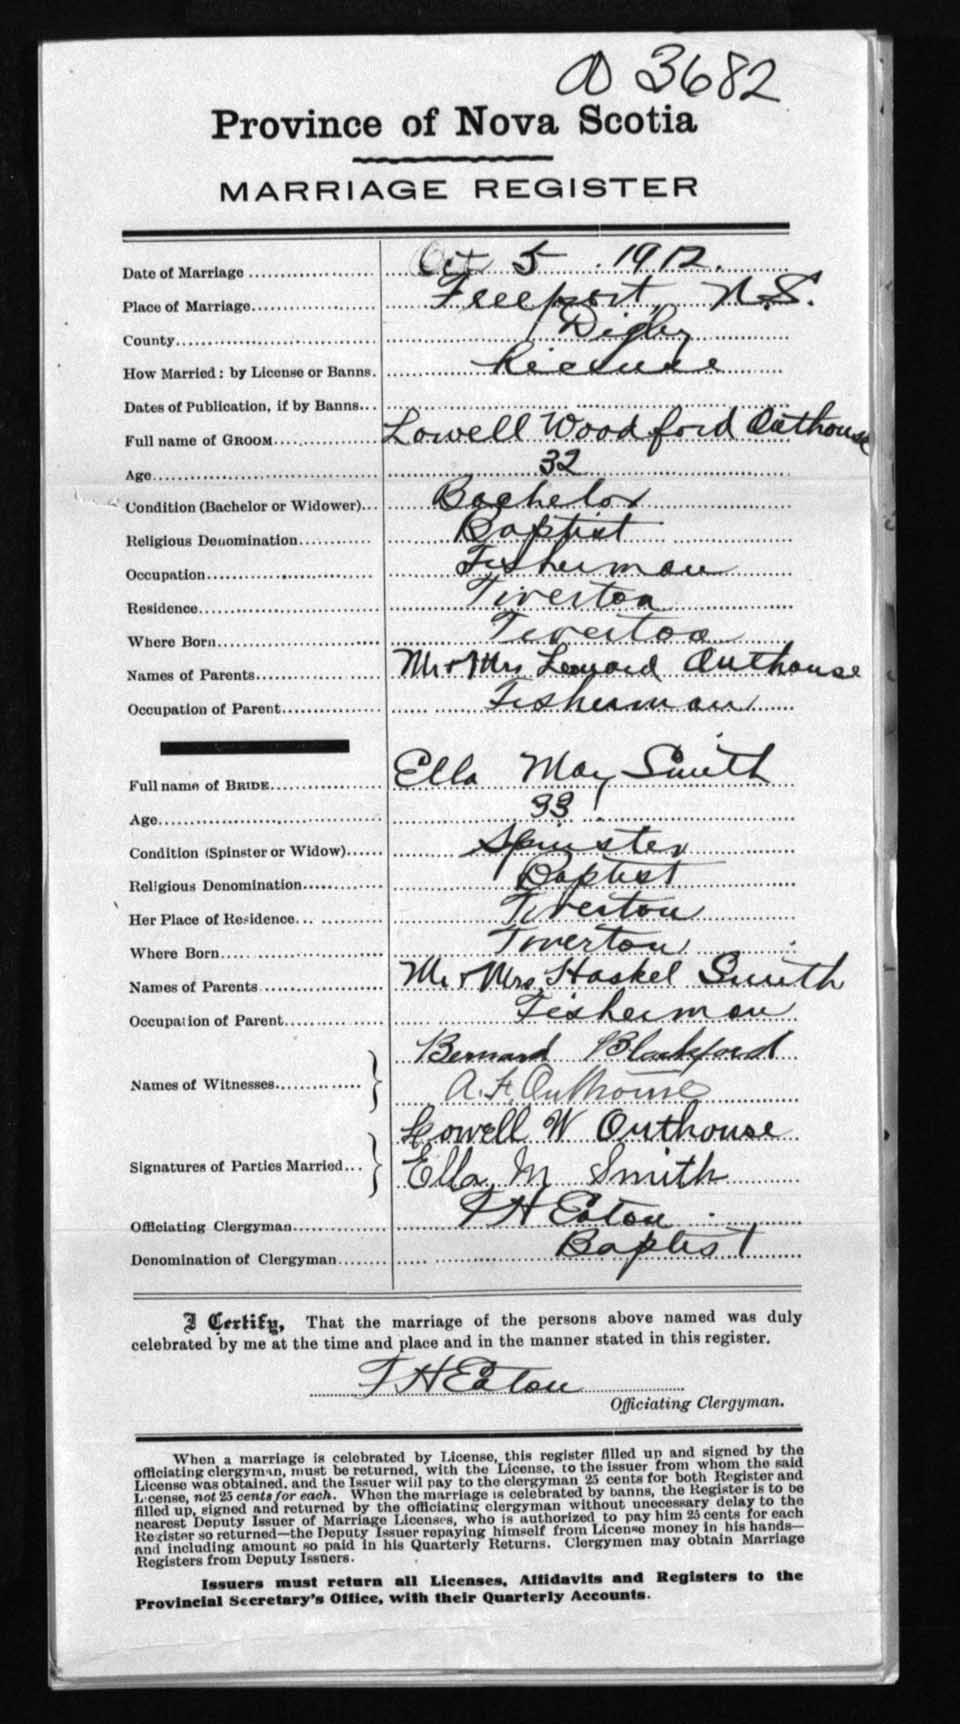 A 3682
Province of Nova Scotia
MARRIAGE REGISTER
Date of Marriage Oct 5 1912.
Place of Marriage Freeport, N.S.
County Digby
How Married: by License or Banns. License
Dates of Publication, if by Banns
Full name of GROOM Lowell Woodford Outhouse
Age 32
Condition (Bachelor or Widower) Bachelor
Religious Denomination Baptist
Occupation Fisherman
Residence Tiverton
Where Born Tiverton
Names of Parents Mr & Mrs Leonard Outhouse
Occupation of Parent Fisherman
Full name of BRIDE Ella May Smith
Age 33
Condition (Spinster or Widow) Spinster
Religious Denomination Baptist
Her Place of Residence Tiverton
Where Born Tiverton
Names of Parents Mr & Mrs Haskel Smith
Occupation of Parent Fisherman
Bernard Blackford
Names of Witnesses
A. F. Outhouse
Lowell W Outhouse
Signatures of Parties Married
Ella M Smith
Officiating Clergyman F H Eaton
Denomination of Clergyman Baptist
I Certify, That the marriage of the persons above named was duly
celebrated by me at the time and place and in the manner stated in this register.
F H Eaton
Officiating Clergyman.
When a marriage is celebrated by License, this register filled up and signed by the
officiating clergyman, must be returned, with the License, to the issuer from whom the said
License was obtained, and the Issuer will pay to the clergyman 25 cents for both Register and
License, not 25 cents for each. When the marriage is celebrated by banns, the Register is to be
filled up, signed and returned by the officiating clergyman without unecessary delay to the
nearest Deputy Issuer of Marriage Licenses, who is authorized to pay him 25 cents for each
Register so returned—the Deputy Issuer repaying himself from License money in his hands—
and including amount so paid in his Quarterly Returns. Clergymen may obtain Marriage
Registers from Deputy Issuers.
Issuers must return all Licenses, Affidavits and Registers to the
Provincial Secretary's Office, with their Quarterly Accounts.